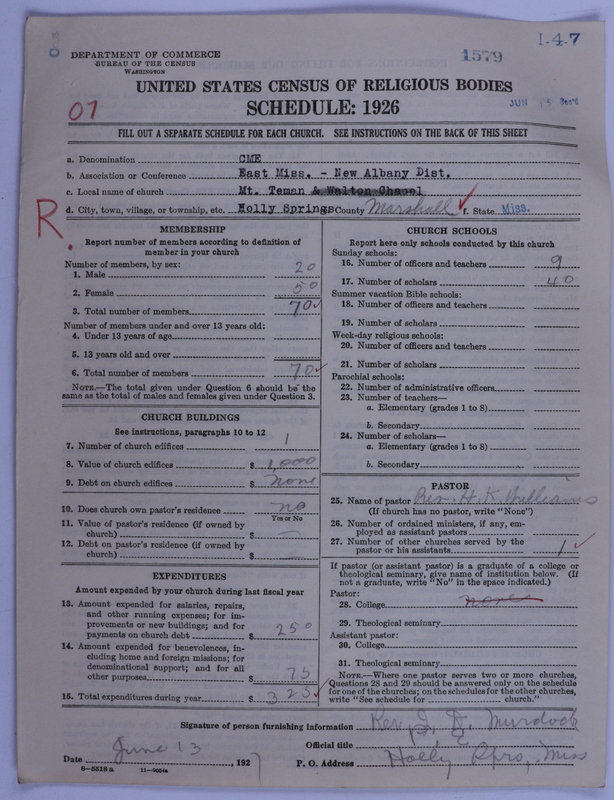 1-4-7
DEPARTMENT OF COMMERCE
BUREAU OF THE CENSUS
WASHINGTON
1579
UNITED STATES CENSUS OF RELIGIOUS BODIES
SCHEDULE: 1926
07
JUN 15
FILL OUT A SEPARATE SCHEDULE FOR EACH CHURCH. SEE INSTRUCTIONS ON THE BACK OF THIS SHEET
a. Denomination CME
b. Association or Conference East Miss. - New Albany Dist.
c. Local name of church Mt. Teman & Walton Chapel
d. City, town, village, or township, etc. Holly Springs County Marshall f. State Miss.
R.
MEMBERSHIP
Report number of members according to definition of
member in your church
Number of members, by sex:
1. Male 20
2. Female 50
3. Total number of members 70
Number of members under and over 13 years old:
4. Under 13 years of age
5. 13 years old and over
6. Total number of members 70
NOTE.—The total given under Question 6 should be the
same as the total of males and females given under Question 3.
CHURCH BUILDINGS
See instructions, paragraphs 10 to 12
7. Number of church edifices 1
8. Value of church edifices $ 1,000
9. Debt on church edifices $ none
10. Does church own pastor's residence no
Yes or No
11. Value of pastor's residence (if owned by
church) $ —
12. Debt on pastor's residence (if owned by
church) $
EXPENDITURES
Amount expended by your church during last fiscal year
13. Amount expended for salaries, repairs,
and other running expenses; for im-
provements or new buildings; and for
payments on church debt $ 250
14. Amount expended for benevolences, in-
cluding home and foreign missions; for
denominational support; and for all
other purposes $ 75
15. Total expenditures during year $ 325
CHURCH SCHOOLS
Report here only schools conducted by this church
Sunday schools:
16. Number of officers and teachers 9
17. Number of scholars 40
Summer vacation Bible schools:
18. Number of officers and teachers
19. Number of scholars
Week-day religious schools:
20. Number of officers and teachers
21. Number of scholars
Parochial schools:
22. Number of administrative officers
23. Number of teachers—
a. Elementary (grades 1 to 8)
b. Secondary
24. Number of scholars—
a. Elementary (grades 1 to 8)
b. Secondary
PASTOR
25. Name of pastor Rev. H. K. Williams
(If church has no pastor, write "None")
26. Number of ordained ministers, if any, em-
ployed as assistant pastors
27. Number of other churches served by the
pastor or his assistants 1
If pastor (or assistant pastor) is a graduate of a college or
theological seminary, give name of institution below. (If
not a graduate, write "No" in the space indicated.)
Pastor:
28. College none
29. Theological seminary
Assistant pastor:
30. College
31. Theological seminary
NOTE.—Where one pastor serves two or more churches,
Questions 28 and 29 should be answered only on the schedule
for one of the churches; on the schedules for the other churches,
write "See schedule for church."
Signature of person furnishing information Rev. Murdock
Official title
Date June 13, 1927 P. O. Address Holly Sprs, Miss
8-5518a 11-9024a